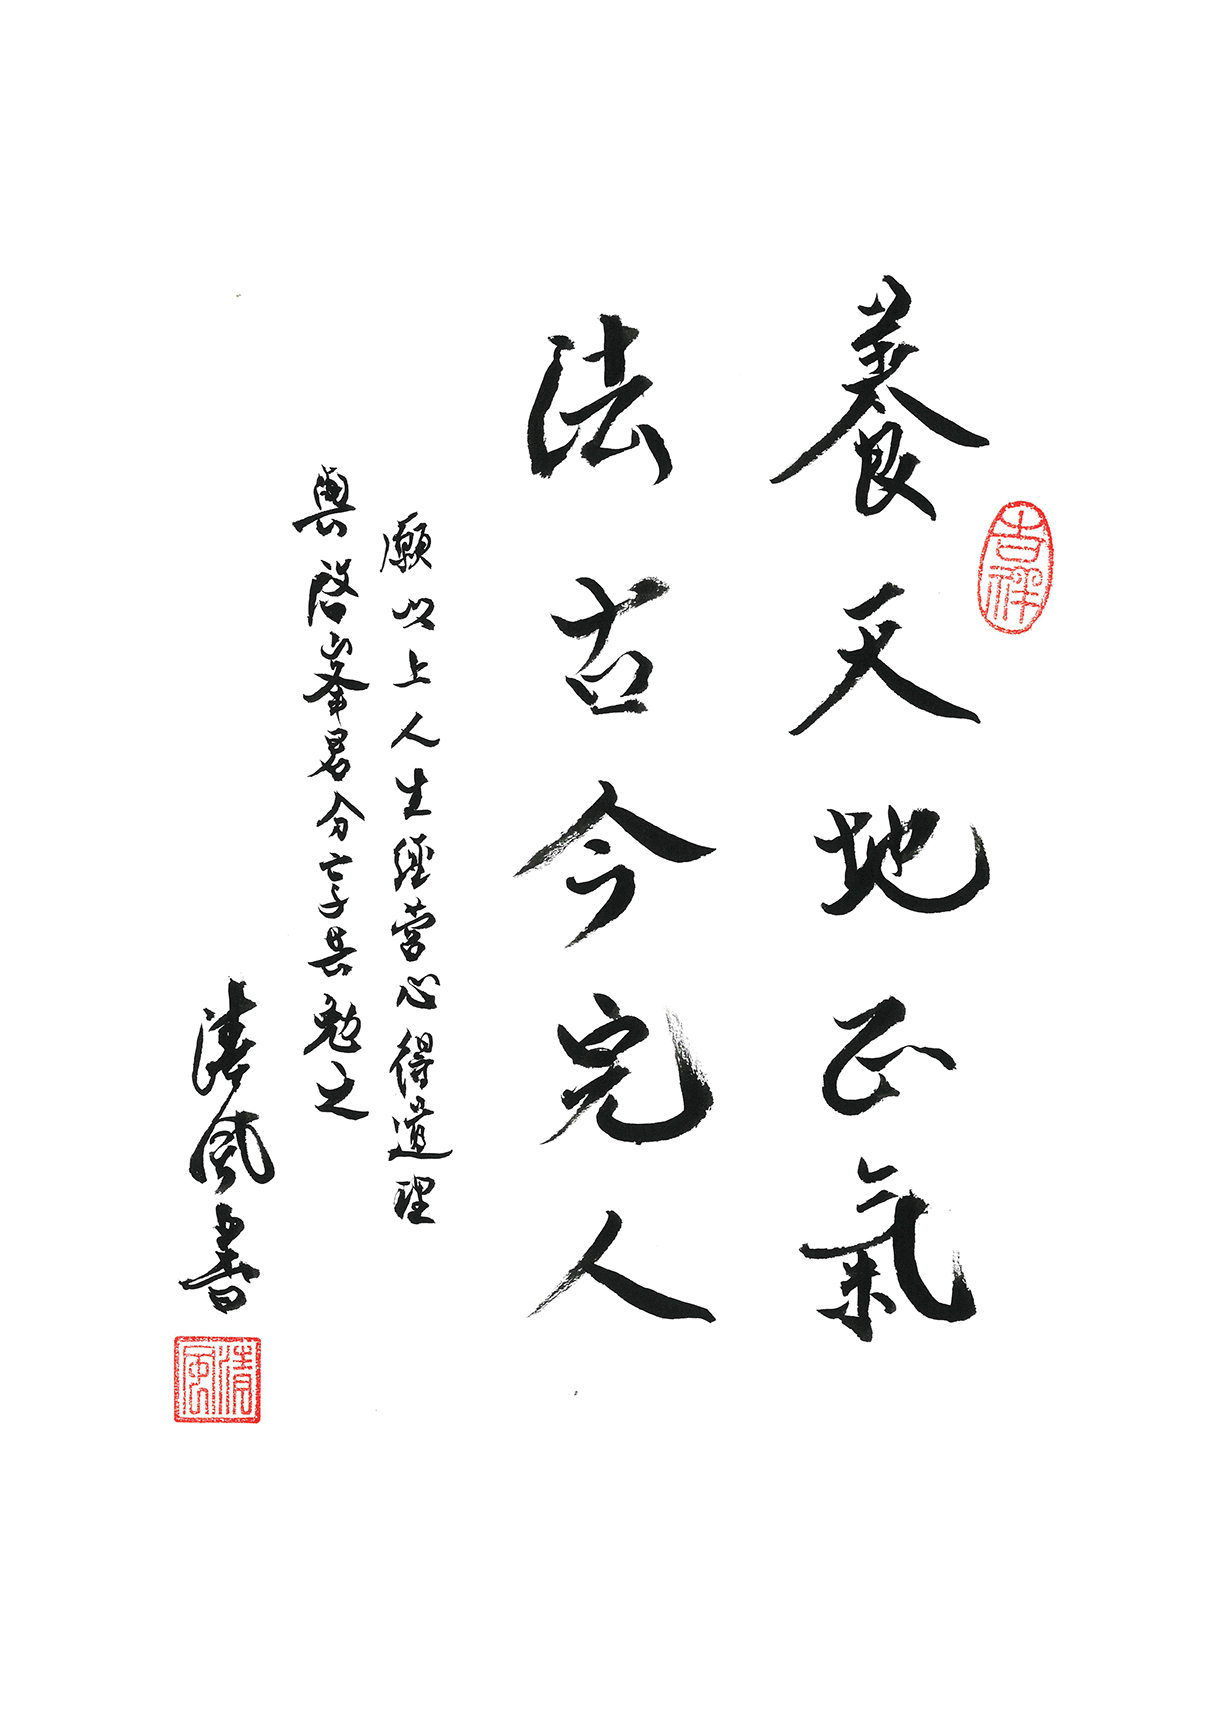 養天地正氣
法古今完人
願以上人生經營心得道理
與啓峯君分享共勉之
清風書
吉祥
清風